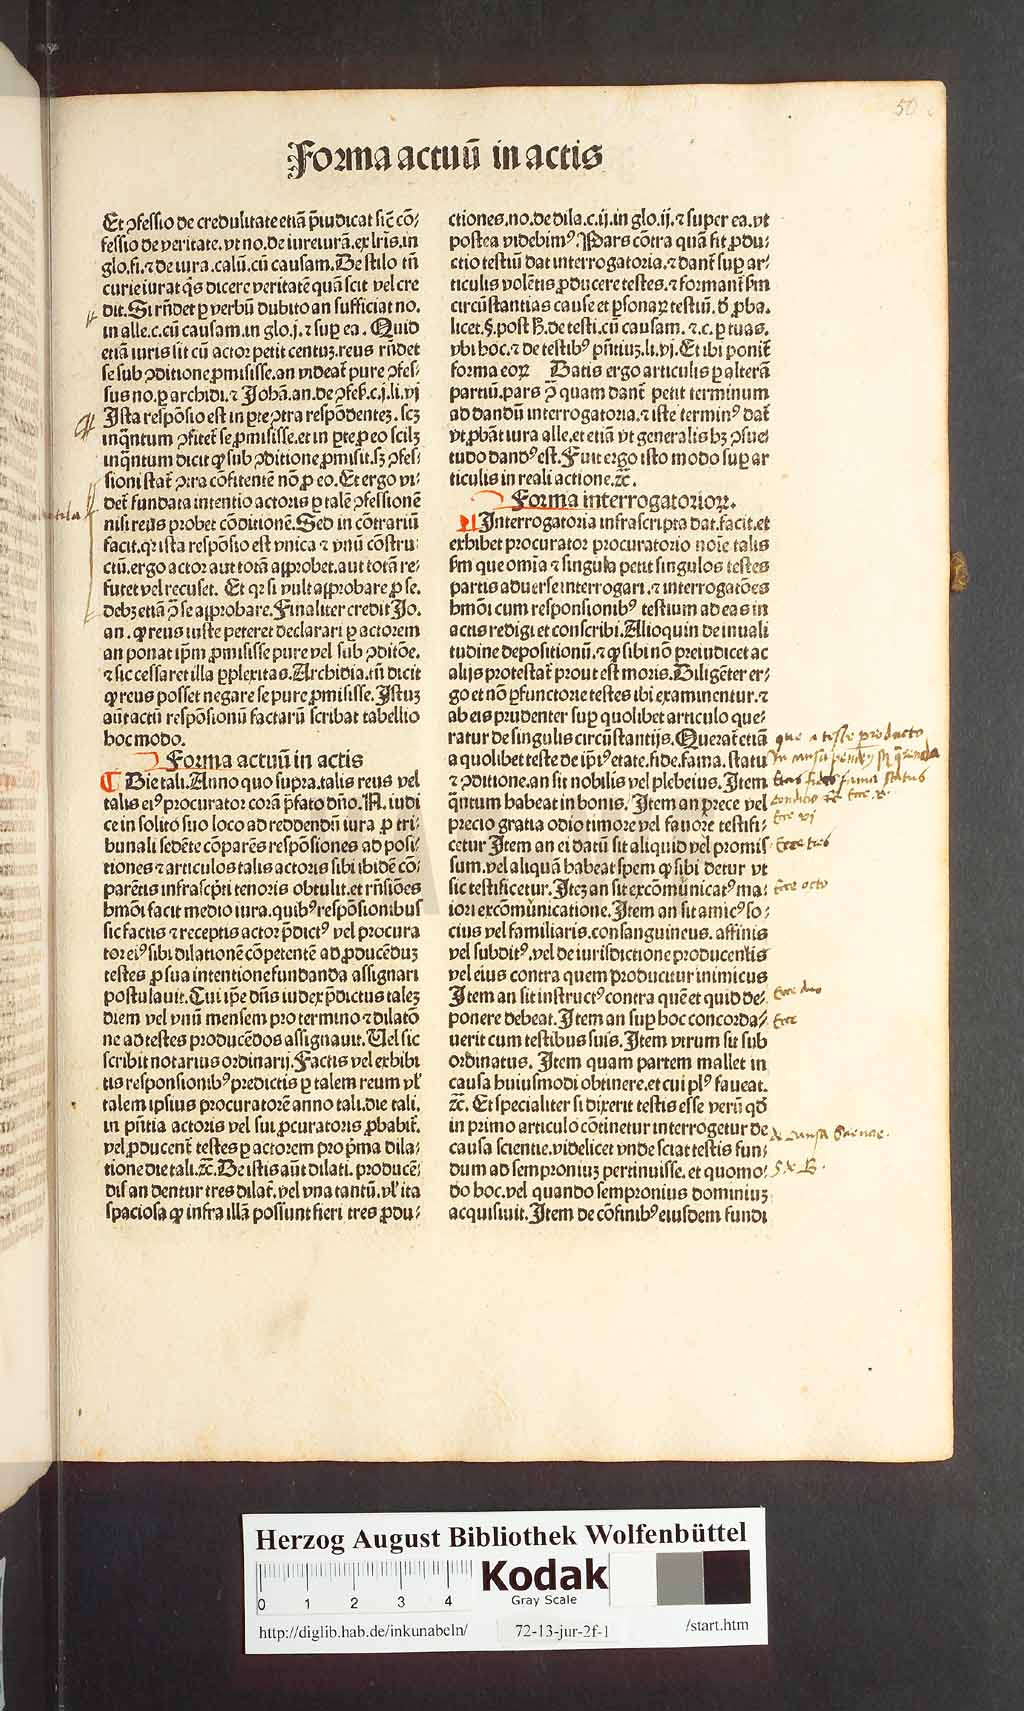 50
Forma actuū in actis
Et ꝯfessio de credulitate etiā p̄iudicat sic̄ cō⸗
fessio de veritate. vt no. de iureiurā. ex lr̄is. in
glo. fi. ⁊ de iura. calū. cū causam. De stilo tn̄
curie iurat qͥs dicere veritatē quā scit vel cre
dit. Si rn̄det ꝑ verbū dubito an sufficiat no.
in alle. c. cū causam. in glo. j. ⁊ suꝑ ea. Quid
etiā iuris sit cū actor petit centuꝫ. reus rn̄det
se sub ꝯditione ꝓmisisse. an videat̄ pure ꝯfes⸗
sus no. ꝑ archidi. ⁊ Johā. an. de ꝯfes. c. j. li. vj
Ista respōsio est in ꝑte ꝯtra respōdenteꝫ. scꝫ
inqͣntum ꝯfitet̄ se ꝓmisisse. et in ꝑte ꝓ eo scilꝫ
inqͣntum dicit ꝙ sub ꝯditione ꝓmisit. sꝫ ꝯfes⸗
sioni stat̄ ꝯtra cōfitentē nō ꝓ eo. Et ergo vi⸗
det̄ fundata intentio actoris ꝑ talē ꝯfessionē
nisi reus probet cōditionē. Sed in cōtrariū
facit. qꝛ ista respōsio est vnica ⁊ vnū cōstru⸗
ctū. ergo actor aut totā aꝓbet. aut totā re⸗
futet vel recuset. Et qꝛ si vult aꝓbare ꝓ se.
debꝫ etiā ꝯͣ se aꝓbare. Finaliter credit Jo.
an. ꝙ reus iuste peteret declarari ꝑ actorem
an ponat ip̄m ꝓmisisse pure vel sub ꝯditōe.
⁊ sic cessaret illa ꝑplexitas. Archidia. tn̄ dicit
ꝙ reus posset negare se pure ꝓmisisse. Istuꝫ
aūt actū respōsionū factarū scribat tabellio
hoc modo.
Forma actuū in actis
Die tali. Anno quo supra. talis reus vel
talis eiꝰ procurator corā p̄fato dn̄o. N. iudi
ce in solito suo loco ad reddendū iura ꝓ tri⸗
bunali sedēte cōparēs respōsiones ad posi⸗
tiones ⁊ articulos talis actoris sibi ibidē cō⸗
parētis infrascp̄ti tenoris obtulit. et rn̄siōes
hmōi facit medio iura. quibꝰ respōsionibus
sic factis ⁊ receptis actor p̄dictꝰ vel procura
tor eiꝰ sibi dilationē cōpetentē ad ꝓducēduꝫ
testes ꝓ sua intentione fundanda assignari
postulauit. Cui ip̄e dn̄s iudex p̄dictus taleꝫ
diem vel vnū mensem pro termino ⁊ dilatō
ne ad testes producēdos assignauit. Uel sic
scribit notarius ordinarij. Factis vel exhibi
tis responsionibꝰ predictis ꝑ talem reum vl̓
talem ipsius procuratorē anno tali. die tali.
in pn̄tia actoris vel sui ꝓcuratoris ꝓhabit̄.
vel ꝓducent̄ testes ꝑ actorem pro p̄ma dila⸗
tione die tali. ⁊c̄. De istis aūt dilati. producē⸗
dis an dentur tres dilat̄. vel vna tantū. vl̓ ita
spaciosa ꝙ infra illā possunt fieri tres ꝓdu⸗
ctiones. no. de dila. c. ij. in glo. ij. ⁊ super ea. vt
postea videbimꝰ. Pars cōtra quā fit ꝓdu⸗
ctio testiū dat interrogatoria. ⁊ dant̄ suꝑ ar⸗
ticulis volētis ꝓducere testes. ⁊ formant̄ ẜm
circūstantias cause et ꝑsonaꝝ testiū. vt ꝓba.
licet. §. post h̄. de testi. cū causam. ⁊. c. ꝑ tuas.
vbi hoc. ⁊ de testibꝰ pn̄tiuꝫ. li. vj. Et ibi ponit̄
forma eoꝝ Datis ergo articulis ꝑ alterā
partiū. pars ꝯͣ quam dant̄ petit terminum
ad dandū interrogatoria. ⁊ iste terminꝰ dat̄
vt ꝓbāt iura alle. et etiā vt generalis hꝫ ꝯsue
tudo dandꝰ est. Fiūt ergo isto modo suꝑ ar
ticulis in reali actione. ⁊c̄.
Forma interrogatorioꝝ.
Interrogatoria infrascripta dat. facit. et
exhibet procurator procuratorio noīe talis
ẜm que omīa ⁊ singula petit singulos testes
partis aduerse interrogari. ⁊ interrogatōes
hmōi cum responsionibꝰ testium ad eas in
actis redigi et conscribi. Alioquin de inuali
tudine depositionū. ⁊ ꝙ sibi nō preiudicet ac
alijs protestat̄ prout est moris. Diligēter er⸗
go et nō ꝑfunctorie testes ibi examinentur. ⁊
ab eis prudenter suꝑ quolibet articulo que⸗
ratur de singulis circūstantijs. Querat̄ etiā
a quolibet teste de ip̄iꝰ etate. fide. fama. statu
⁊ ꝯditione. an sit nobilis vel plebeius. Item
qͣntum habeat in bonis. Item an prece vel
precio gratia odio timore vel fauore testifi⸗
cetur Item an ei datū sit aliquid vel promis
sum. vel aliquā habeat spem ꝙ sibi detur vt
sic testificetur. Iteꝫ an sit excōmunicatꝰ ma⸗
iori excōmunicatione. Item an sit amicꝰ so⸗
cius vel familiaris. consanguineus. affinis
vel subditꝰ. vel de iurisdictione producentis
vel eius contra quem producitur inimicus
Item an sit instructꝰ contra quē et quid de⸗
ponere debeat. Item an suꝑ hoc concorda⸗
uerit cum testibus suis. Item vtrum sit sub
ordinatus. Item quam partem mallet in
causa huiusmodi obtinere. et cui plꝰ faueat.
⁊c̄. Et specialiter si dixerit testis esse verū qd̓
in primo articulo cōtinetur interrogetur de
causa scientie. videlicet vnde sciat testis fun⸗
dum ad semproniuꝫ pertinuisse. et quomo⸗
do hoc. vel quando sempronius dominiuꝫ
acquisiuit. Item de cōfinibꝰ eiusdem fundi
que a teste producto
Etas fides fama status
Ecce vj
Ecce tres
Ecce octo
Ecce duo
Ecce
Herzog August Bibliothek Wolfenbüttel
0 1 2 3 4
Kodak
Gray Scale
http://diglib.hab.de/inkunabeln/
72-13-jur-2f-1
/start.htm